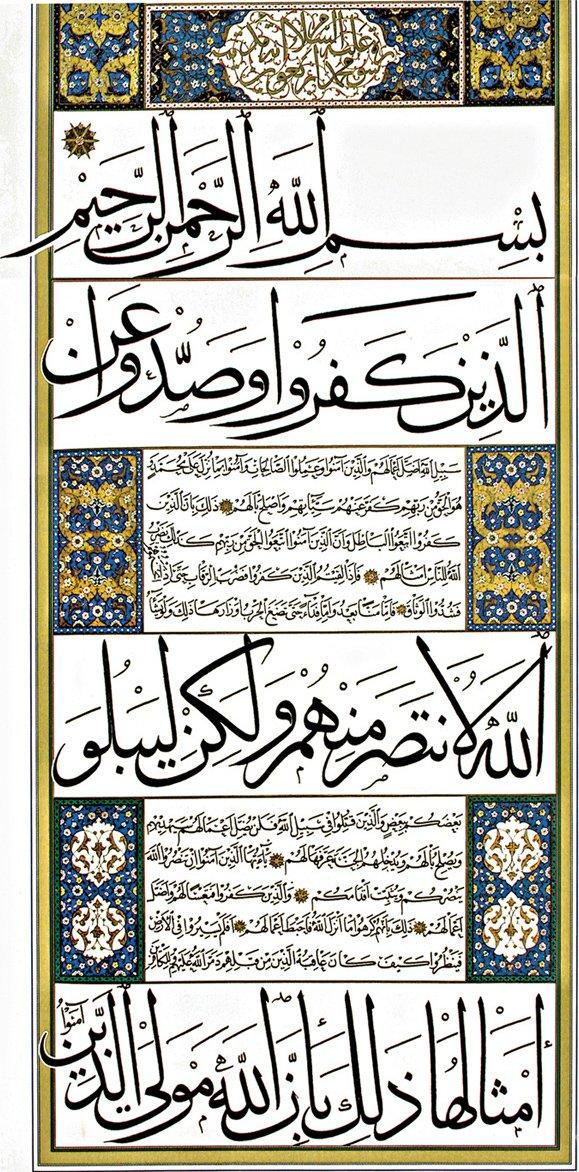 بِسْمِ اللَّهِ الرَّحْمٰنِ الرَّحِيْمِ
اَلَّذِيْنَ كَفَرُوْا وَصَدُّوْا عَنْ
سَبِيلِ اللهِ اَضَلَّ اَعْمَالَهُمْ وَالَّذِينَ آمَنُوا وَعَمِلُوا الصَّالِحَاتِ وَآمَنُوا بِمَا نُزِّلَ عَلَى مُحَمَّدٍ وَ
هُوَ الْحَقُّ مِنْ رَبِّهِمْ كَفَّرَ عَنْهُمْ سَيِّئَاتِهِمْ وَاَصْلَحَ بَالَهُمْ ذٰلِكَ بِاَنَّ الَّذِينَ
كَفَرُوا اتَّبَعُوا الْبَاطِلَ وَاَنَّ الَّذِينَ آمَنُوا اتَّبَعُوا الْحَقَّ مِنْ رَبِّهِمْ كَذٰلِكَ يَضْرِبُ
اللهُ لِلنَّاسِ اَمْثَالَهُمْ فَاِذَا لَقِيتُمُ الَّذِينَ كَفَرُوا فَضَرْبَ الرِّقَابِ حَتَّى اِذَا
فَشُدُّوا الْوَثَاقَ فَاِمَّا مَنًّا بَعْدُ وَاِمَّا فِدَاءً حَتَّى تَضَعَ الْحَرْبُ اَوْزَارَهَا ذٰلِكَ وَلَوْ يَشَاءُ
اَللّٰهُ لَانْتَصَرَ مِنْهُمْ وَلٰكِنْ لِيَبْلُوَ
بَعْضَكُمْ بِبَعْضٍ وَالَّذِينَ قُتِلُوا فِي سَبِيلِ اللهِ فَلَنْ يُضِلَّ اَعْمَالَهُمْ سَيَهْدِيهِمْ
وَيُصْلِحُ بَالَهُمْ وَيُدْخِلُهُمُ الْجَنَّةَ عَرَّفَهَا لَهُمْ يَا اَيُّهَا الَّذِينَ آمَنُوا اِنْ تَنْصُرُوا اللهَ
يَنْصُرْكُمْ وَيُثَبِّتْ اَقْدَامَكُمْ وَالَّذِينَ كَفَرُوا فَتَعْسًا لَهُمْ وَاَضَلَّ
اَعْمَالَهُمْ ذٰلِكَ بِاَنَّهُمْ كَرِهُوا مَا اَنْزَلَ اللهُ فَاَحْبَطَ اَعْمَالَهُمْ اَفَلَمْ يَسِيرُوا فِي الْاَرْضِ
فَيَنْظُرُوا كَيْفَ كَانَ عَاقِبَةُ الَّذِينَ مِنْ قَبْلِهِمْ دَمَّرَ اللهُ عَلَيْهِمْ وَلِلْكَافِرِينَ
أَمْثَالُهَا ذٰلِكَ بِأَنَّ اللّٰهَ مَوْلَى الَّذِيْنَ آمَنُوا